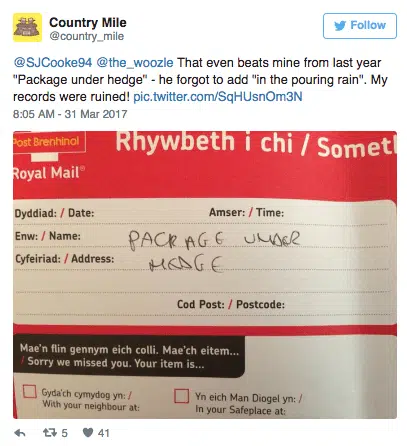 Country Mile
@country_mile
Follow
@SJCooke94 @the_woozle That even beats mine from last year
"Package under hedge" - he forgot to add "in the pouring rain". My
records were ruined! pic.twitter.com/SqHUsnOm3N
8:05 AM - 31 Mar 2017
Post Brenhinol
Rhywbeth i chi / Somet
Royal Mail®
Dyddiad: / Date:
Amser: / Time:
Enw: / Name: PACKAGE UNDER
Cyfeiriad: / Address: HEDGE
Cod Post: / Postcode:
Mae'n flin gennym eich colli. Mae'ch eitem...
/ Sorry we missed you. Your item is...
Gyda'ch cymydog yn: /
With your neighbour at:
Yn eich Man Diogel yn: /
In your Safeplace at:
5
41